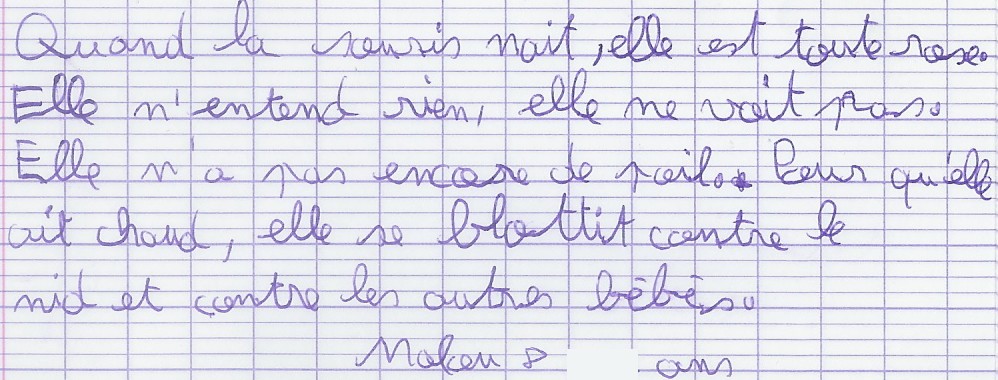 Quand la souris nait, elle est toute rose.
Elle n'entend rien, elle ne voit pas.
Elle n'a pas encore de poil. Pour qu'elle
ait chaud, elle se blottit contre le
nid et contre les autres bébés.
8 ans